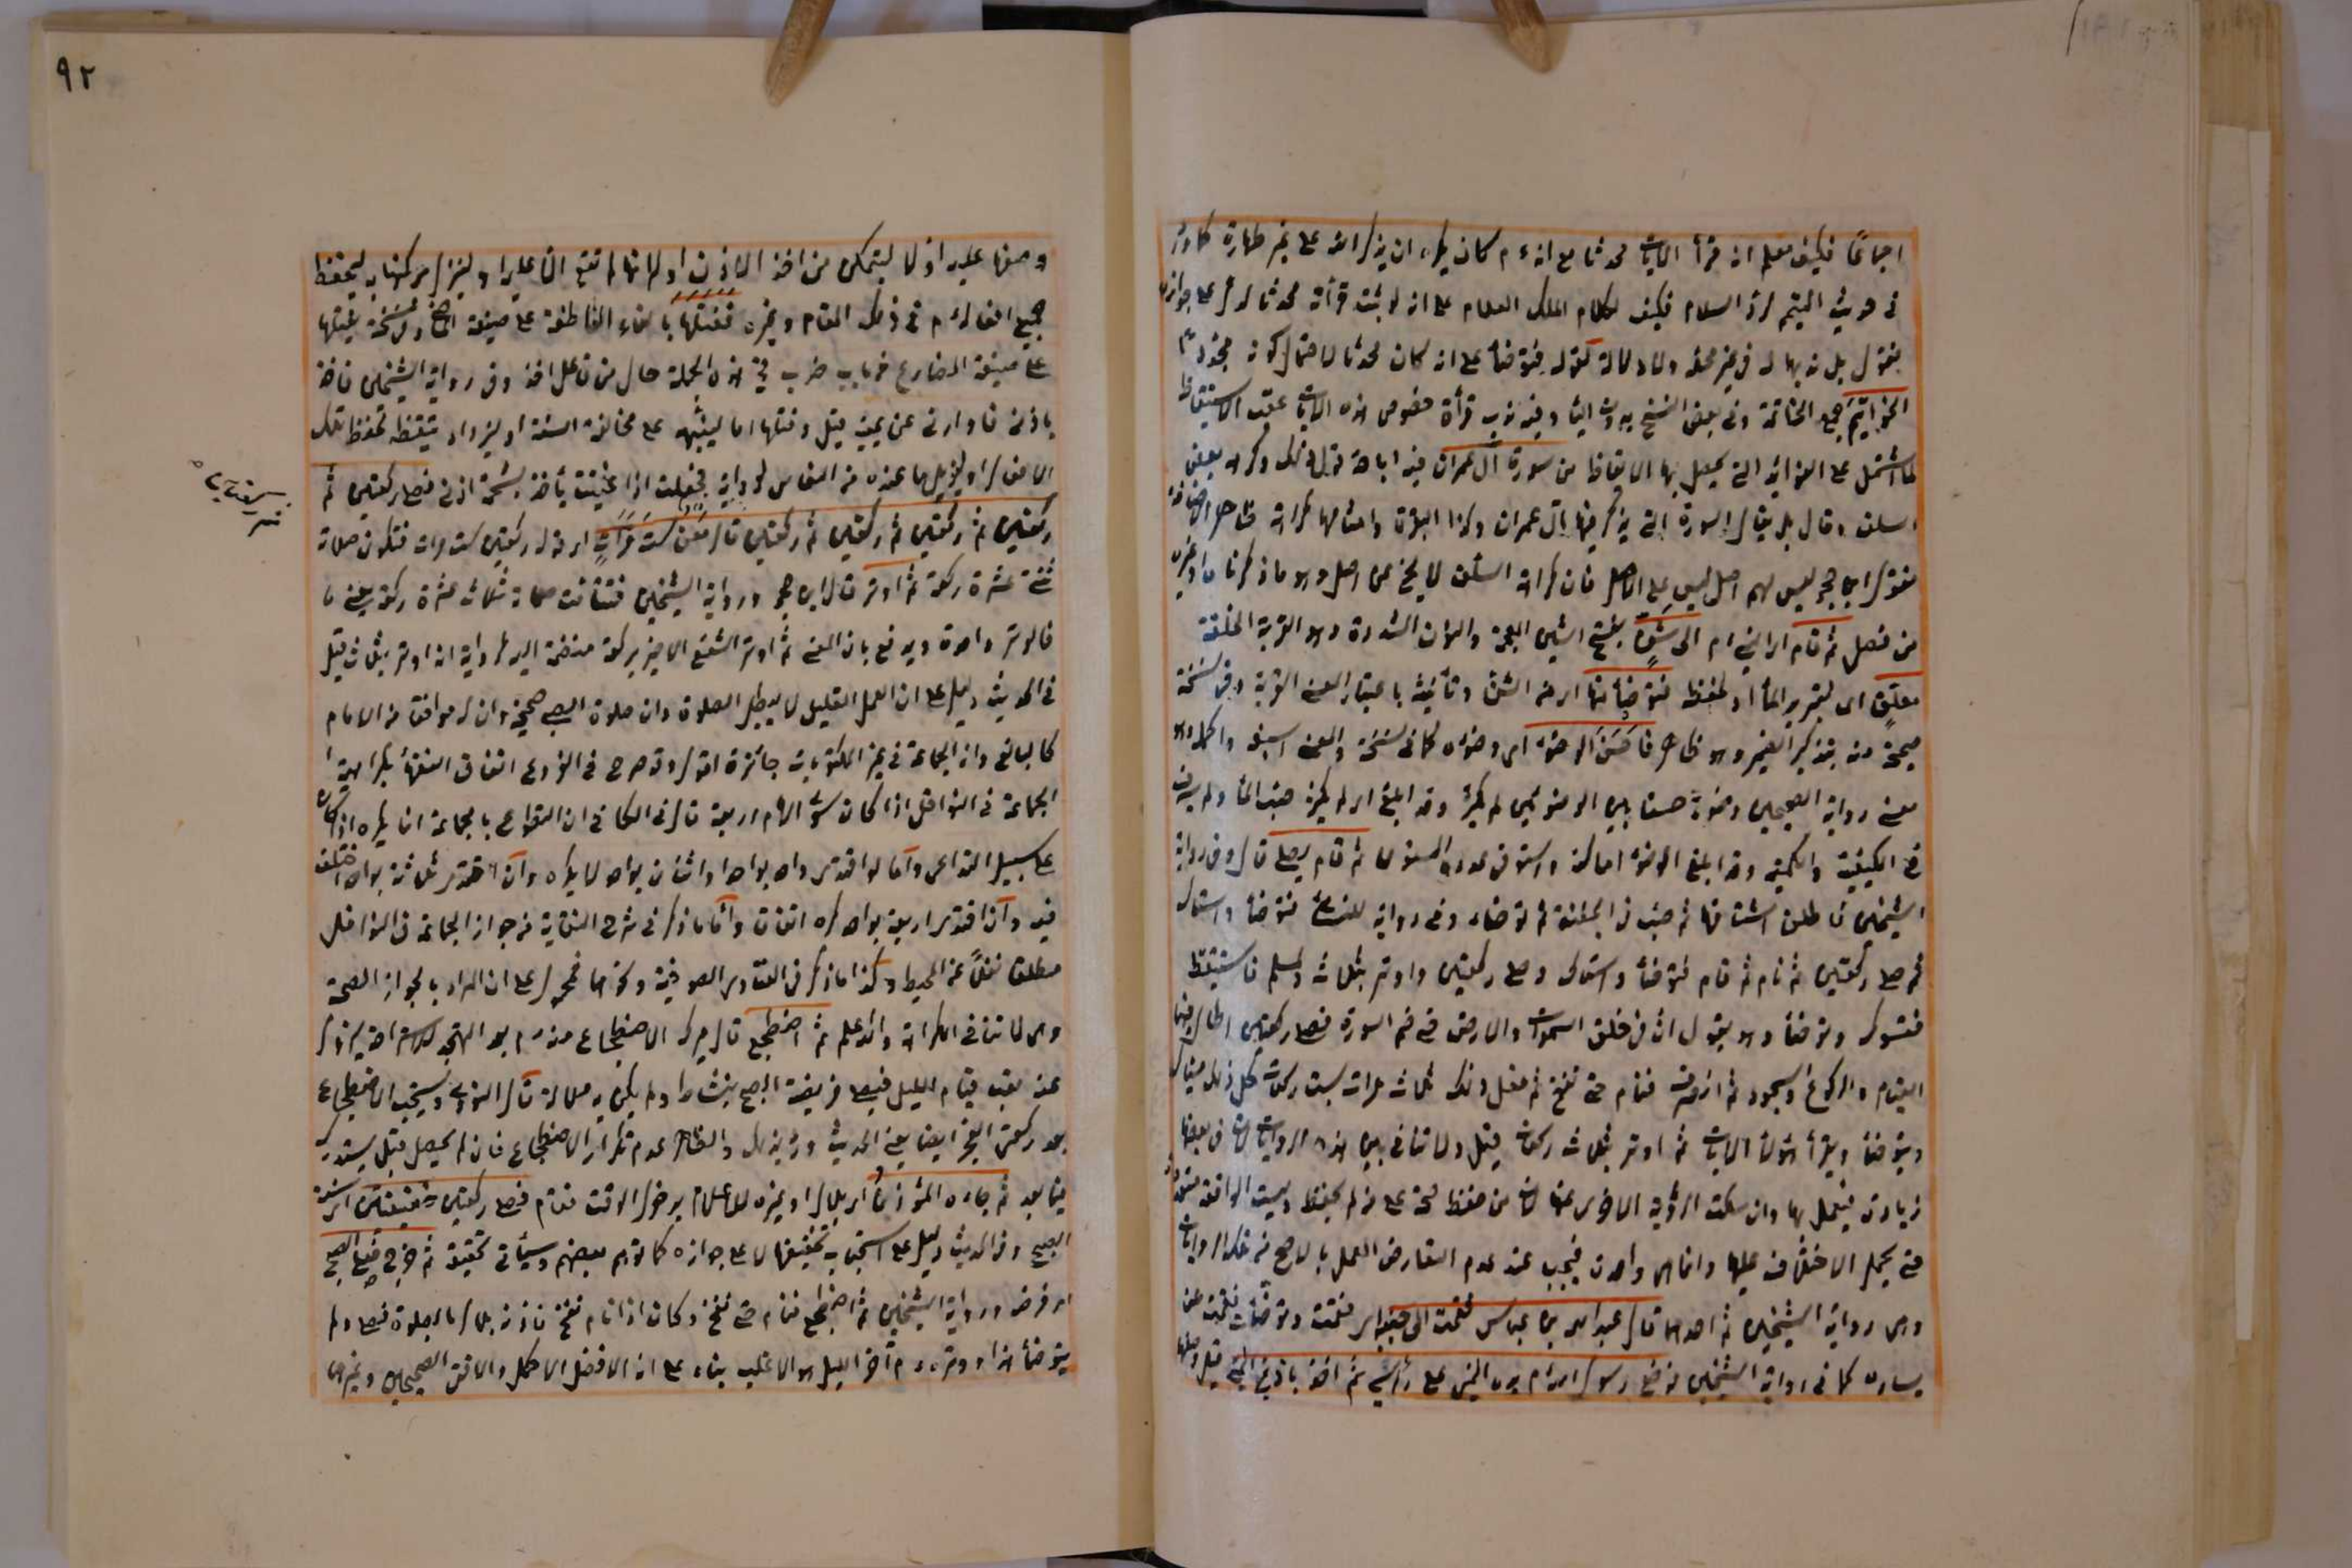 اجماعًا فكيف معلم انه قرأ الآيات محدثا مع انه ءم كان يكره ان يذكر الله على غير طهارة كما ورد
في حديث التيمم لرد السلام فكيف بكلام الملك العلام على انه لو ثبت قرأته محدثا لدل على جوازه
بقول بل نديها له في غير محله ولا دلالة كقوله فتوضأ على انه كان محدثا لاحتمال كونه مجددا
الخواتيم جمع الخاتمة وفي بعض النسخ بدون الياء وفيه ندب قرأة خصوص هذه الآيات عقب الاستيقاظ
لما اشتمل على الفوائد التي يحصل بها الايقاظ من سورة آل عمران فيه اباحة قول ذلك وكره بعض
السلف وقال بل يقال السورة التي يذكر فيها آل عمران وكذا البقرة وامثالها
فقول ابن حجر ليس لهم اصل ليس على الاصل فان كراهة السلف لا يخ عن اصل وهو ما ذكرنا
من فصل ثم قام اى النبي ءم الى شنّ بفتح الشين المعجمة والنون المشددة وهو القربة الخلقة
معلق اى لتبريد الماء او لحفظه فتوضأ منها اى من الشن وتأنيث باعتبار المعنى القربة وفي نسخة
صحيحة منه بتذكير الضمير وهو ظاهر فاحسن الوضوء اى وضوءه كما في نسخة والمعنى اسبغه واكمله وهو
معنى رواية الصحيحين وضوءً حسنا بين الوضوئين لم يكثر وقد ابلغ اى لم يكثر صب الماء ولم يسرف
في الكيفية والكمية وقد ابلغ الوضوء اماكنه واستوفى عدده المسنون ثم قام يصلي قال وفي رواية
الشيخين فاطلق شناقها ثم صب في الجفنة ثم توضأ وفي رواية للنسائي فتوضأ واستاك
ثم صلى ركعتين ثم نام ثم قام فتوضأ واستاك وصلى ركعتين واوتر بثلاث ولمسلم فاستيقظ
فتسوك وتوضأ وهو يقول ان في خلق السموات والارض حتى ختم السورة فصلى ركعتين اطال فيهما
القيام والركوع والسجود ثم انصرف فنام حتى نفخ ثم فعل ذلك ثلاث مرات بست ركعات كل ذلك يستاك
ويتوضأ ويقرأ هؤلاء الآيات ثم اوتر بثلاث ركعات قيل ولا تنافي بين هذه الروايات لان في بعضها
زيادة فيعمل بها وان سكت الرواية الاخرى عنها لان من حفظ حجة على من لم يحفظ وليست الواقعة متعددة
حتى يحمل الاختلاف عليها وانما هي واحدة فيجب عند عدم التعارض العمل بالاصح من تلك الروايات
وهى رواية الشيخين ثم احدهما قال عبد الله بن عباس فقمت الى جنبه اى فقمت وتوضأت فقمت عن
يساره كما في رواية الشيخين فوضع رسول الله ءم يده اليمنى على رأسي ثم اخذ باذني اليمنى قيل وضعها
٩٢
وضعها عليه اولا ليتمكن من اخذ الاذن او لانها لم تقع الا عليه او لينزل بركتها به ليحفظ
جميع افعاله ءم في ذلك المقام وغيره ففتلها بالفاء العاطفة على صيغة الماضي وفي نسخة يفتلها
على صيغة المضارع من باب ضرب في هذه الجملة حال من فاعل اخذ وفي رواية الشيخين فاخذ
باذني فادارني عن يمينه قيل وفتلها اما لينبهه على مخالفة السنة او ليزداد تيقظه لحفظ تلك
الافعال او ليزيل ما عنده من النعاس لرواية فجعلت اذا غفيت يأخذ بشحمة اذني فصلى ركعتين ثم
ركعتين ثم ركعتين ثم ركعتين ثم ركعتين قال معن ست مرات اى قوله ركعتين ست مرات فتكون صلاته
ثنتى عشرة ركعة ثم اوتر قال ابن حجر ورواية الشيخين فتتامت صلاته ثلاث عشرة ركعة يعني
فالوتر واحدة ويدفع بان المعنى ثم اوتر الشفع الاخير بركعة منضمة اليه لرواية انه اوتر بثلاث قيل
في الحديث دليل على ان العمل القليل لا يبطل الصلوة وان صلوة الصبي صحيحة وان له موقفا من الامام
كالبالغ وان الجماعة في غير المكتوبات جائزة اقول وقد صرح في الفروع اتفاق الفقهاء بكراهية
الجماعة في النوافل اذا كان سوى الامام اربعة قال في الكافي ان التطوع بالجماعة انما يكره اذا كان
على سبيل التداعى واما لو اقتدى واحد بواحد او اثنان بواحد لا يكره وان اقتدى ثلاثة بواحد اختلف
فيه وان اقتدى اربعة بواحد كره اتفاقا واما ما ذكر في شرح النقاية من جواز الجماعة في النوافل
مطلقا نقلاً عن المحيط وكذا ما ذكر في الفتاوى الصوفية ونحوهما فمحمول على ان المراد بالجواز الصحة
وهى لا تنافي الكراهة والله اعلم ثم اضطجع قال ميرك الاضطجاع منه ءم بعد التهجد للاستراحة ليزول
عنه تعب قيام الليل فيصلي فريضة الصبح بنشاط ولم يكن به ملالة قال النووي ويستحب الاضطجاع
بعد ركعتى الفجر ايضا يعني لحديث ورد بذلك والظاهر عدم تكرار الاضطجاع فان لم يحصل قبل يستدرك
فيما بعد ثم جاءه المؤذن اى بلال او غيره للاعلام بدخول الوقت فقام فصلى ركعتين خفيفتين اى سنة
الصبح وفي الحديث دليل على استحباب تخفيفهما لا على جوازه كما توهم بعضهم وسيأتي تحقيقه ثم خرج فصلى الصبح
اى فرضه ورواية الشيخين ثم اضطجع فنام حتى نفخ وكان اذا نام نفخ فاذنه بلال بالصلوة فصلى ولم
يتوضأ هذا ووتره ءم آخر الليل هو الاغلب بناء على انه الافضل الاكمل والا فقى الصحيحين وغيرهما